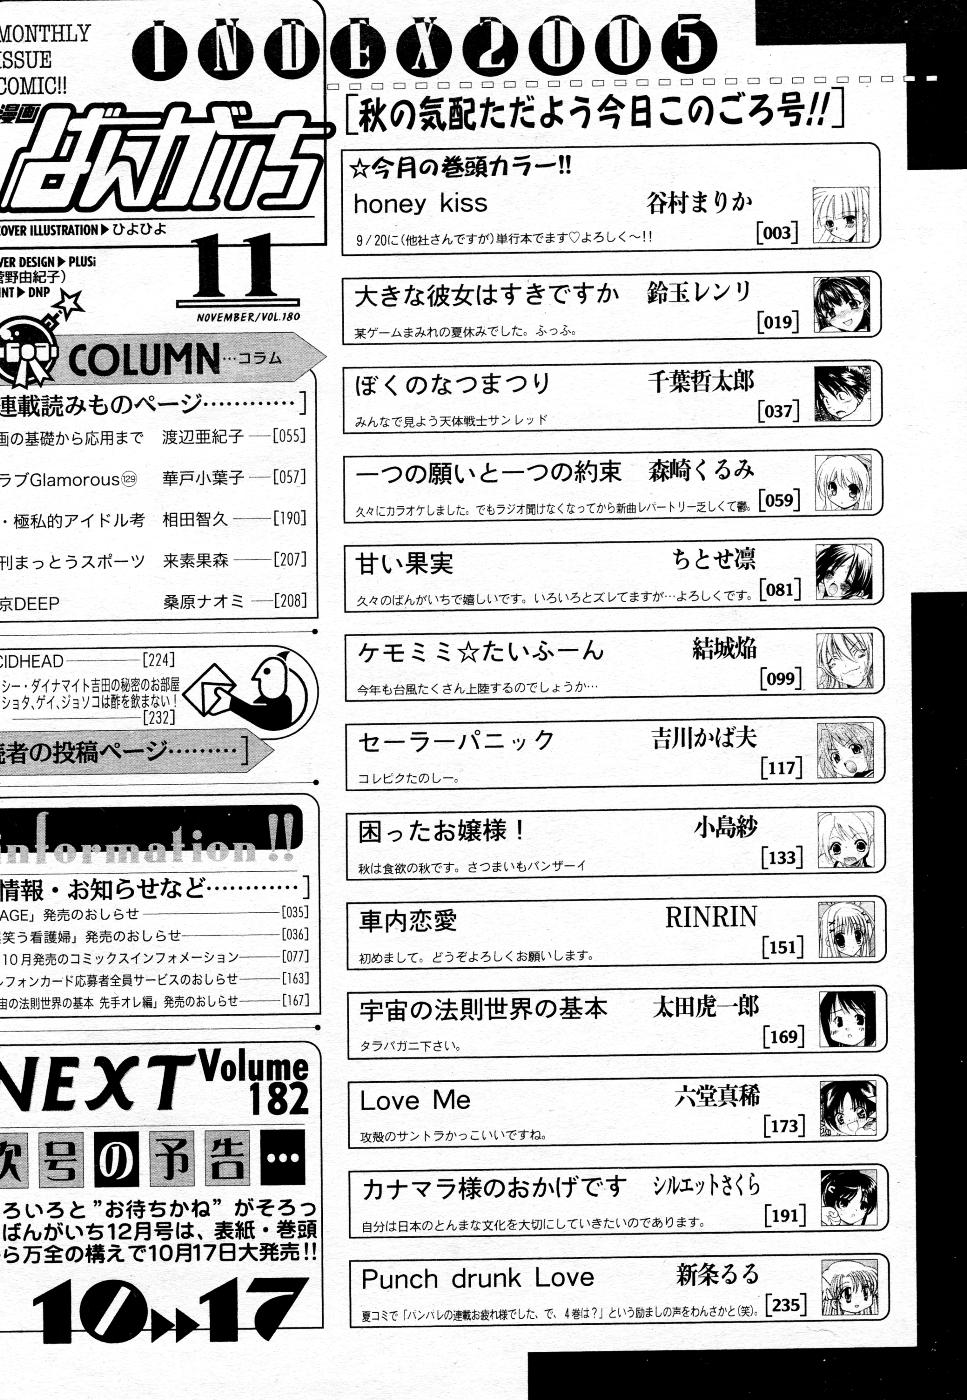 INDEX2005
MONTHLY
ISSUE
COMIC!!
漫画
ばんがいち
COVER ILLUSTRATION▶ひよひよ
VER DESIGN▶PLUSi
菅野由紀子)
INT▶DNP
11
NOVEMBER/VOL.180
COLUMN…コラム
連載読みものページ…………]
画の基礎から応用まで 渡辺亜紀子 ―[055]
ラブGlamorous129 華戸小葉子 ―[057]
・極私的アイドル考 相田智久 ―[190]
刊まっとうスポーツ 来素果森 ―[207]
京DEEP 桑原ナオミ ―[208]
CIDHEAD ―[224]
シー・ダイナマイト吉田の秘密のお部屋
ショタ、ゲイ、ジョソコは酢を飲まない!
―[232]
読者の投稿ページ………]
information!!
情報・お知らせなど…………]
AGE」発売のおしらせ ―[035]
笑う看護婦」発売のおしらせ ―[036]
10月発売のコミックスインフォメーション ―[077]
レフォンカード応募者全員サービスのおしらせ ―[163]
宙の法則世界の基本 先手オレ編」発売のおしらせ ―[167]
NEXT Volume 182
次号の予告…
ろいろと”お待ちかね”がそろっ
ばんがいち12月号は、表紙・巻頭
ら万全の構えで10月17日大発売!!
10▶▶17
[秋の気配ただよう今日このごろ号!!]
☆今月の巻頭カラー!!
honey kiss 谷村まりか
9/20に(他社さんですが)単行本でます♡よろしく〜!! [003]
大きな彼女はすきですか 鈴玉レンリ
某ゲームまみれの夏休みでした。ふっふ。 [019]
ぼくのなつまつり 千葉哲太郎
みんなで見よう天体戦士サンレッド [037]
一つの願いと一つの約束 森崎くるみ
久々にカラオケしました。でもラジオ聞けなくなってから新曲レパートリー乏しくて鬱。 [059]
甘い果実 ちとせ凛
久々のばんがいちで嬉しいです。いろいろとズレてますが…よろしくです。 [081]
ケモミミ☆たいふーん 結城焔
今年も台風たくさん上陸するのでしょうか… [099]
セーラーパニック 吉川かば夫
コレピクたのしー。 [117]
困ったお嬢様! 小島紗
秋は食欲の秋です。さつまいもバンザーイ [133]
車内恋愛 RINRIN
初めまして。どうぞよろしくお願いします。 [151]
宇宙の法則世界の基本 太田虎一郎
タラバガニ下さい。 [169]
Love Me 六堂真稀
攻殻のサントラかっこいいですね。 [173]
カナマラ様のおかげです シルエットさくら
自分は日本のとんまな文化を大切にしていきたいのであります。 [191]
Punch drunk Love 新条るる
夏コミで「バンバレの連載お疲れ様でした、で、4巻は?」という励ましの声をわんさかと(笑)。 [235]